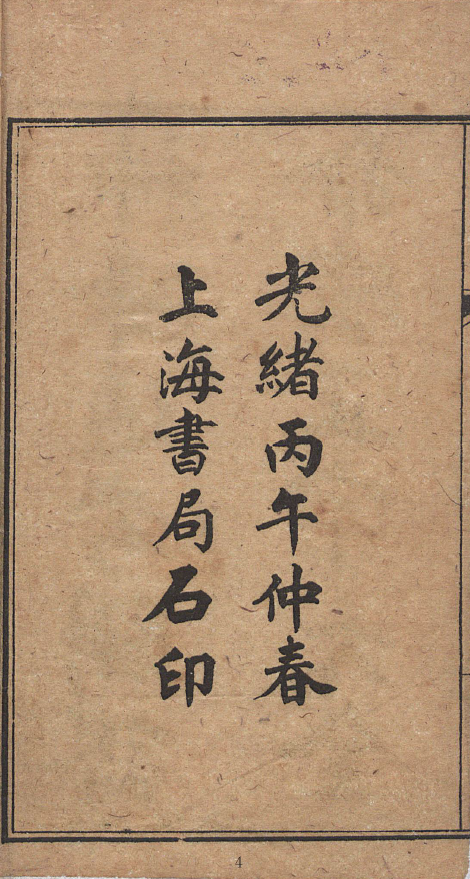 光緒丙午仲春
上海書局石印
4